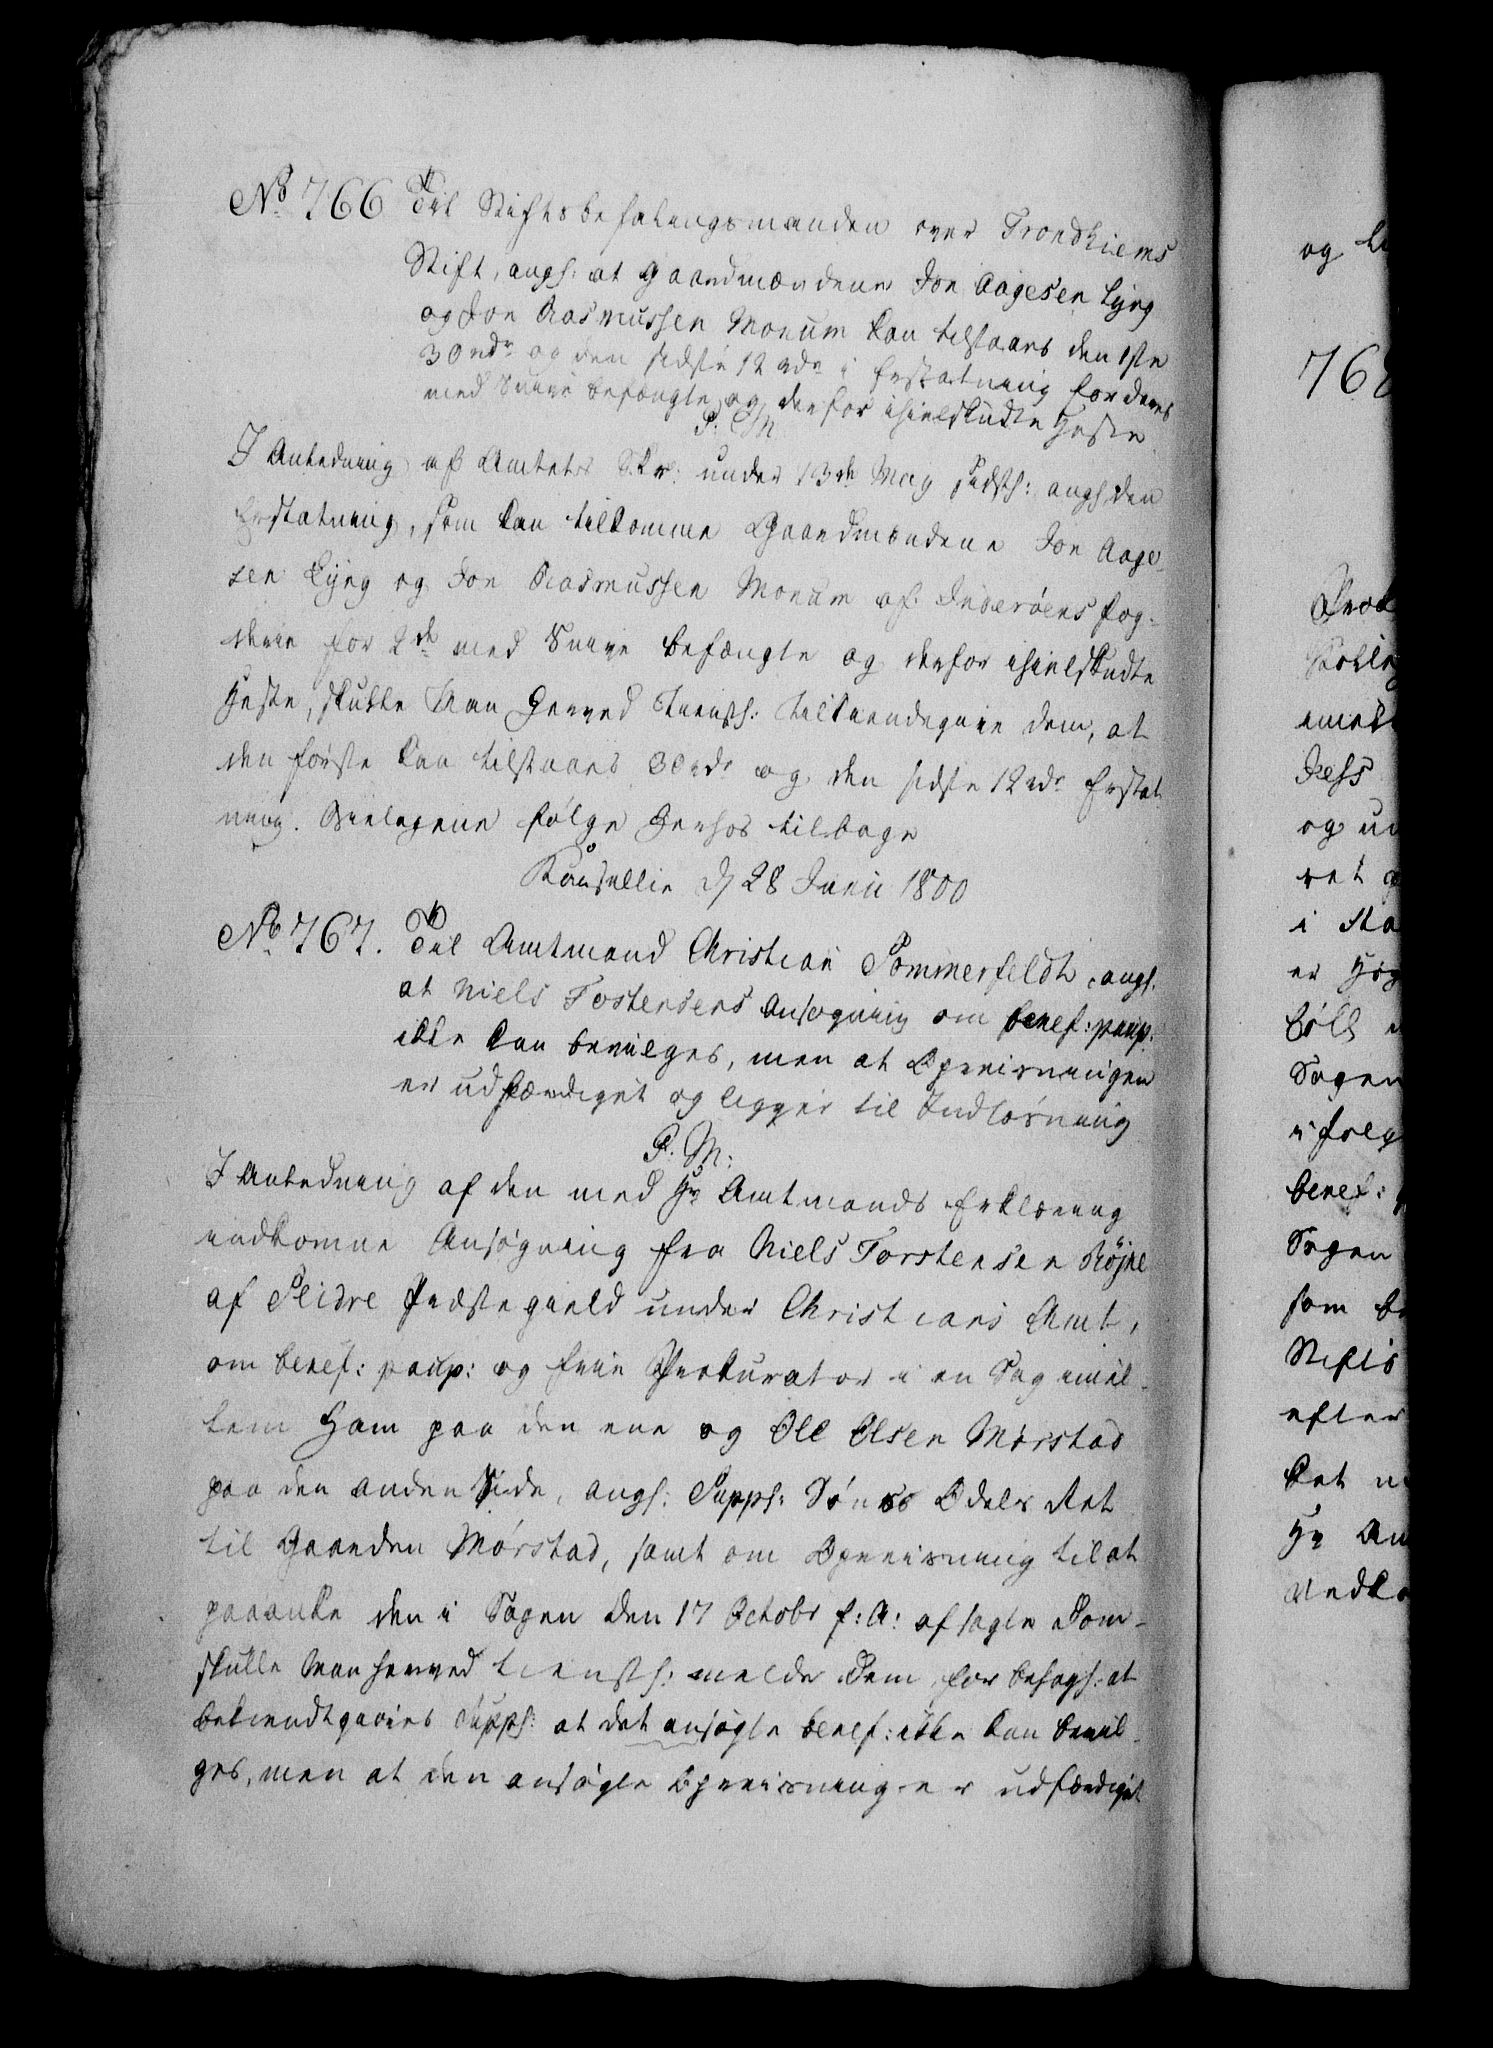 No 766 Til Stiftsbefalingsmanden over Trondhiems
Stift, angs: at Gaardmændene Jon Aagesen Lyng
og Jon Rasmussen Monum kan tilstaaes den 1ste
30 rdr og den sidste 12 rdr i Erstatning for deres
med Snive befængte og derfor ihielskudte Heste
P. M.
I Anledning af Amtets Skr: under 13de May sidstl: angl den
Erstatning, som kan tilkomme Gaardmændene Jon Aage-
sen Lyng og Jon Rasmussen Monum af Inderöens Fog-
derie for 2de med Snive befængte og derfor ihielskudte
Heste, skulle Man herved tienstl: tilkiendegive dem, at
den förste kan tilstaaes 30 rdr og den sidste 12 rdr Erstat
ning. Bielagene fölge herhos tilbage
Cancellie d 28 Junii 1800
No 767. Til Amtmand Christian Sommerfeldt, angl.
at Niels Tostensens Ansøgning om benef: paup:
ikke kan bevilges, men at Opreisningen
er udfærdiget og ligger til Indlösning
P. M:
I Anledning af den med Hr Amtmands Erklæring
indkomne Ansögning fra Niels Torstensen Röjne
af Slidre Præstegield under Christians Amt,
om benef: paup: og frie Prokurator i en Sag imel-
lem ham paa den ene og Ole Olsen Mörstad
paa den anden Side, angl: Suppl: Söns Odels Ret
til Gaarden Mörstad, samt om Opreisning til at
paaanke den i Sagen den 17 Octobr f: A: afsagte Dom-
skulle Man herved tienstl: melde Dem for behagl: at
bekiendtgiöres Suppl: at det ansögte benef: ikke kan bevil-
ges, men at den ansögte Opreisning er udfærdiget
og
768
og
ret
i Sta
er
Sagen
benef:
Sagen
som
Stifts
efter
Hr Am